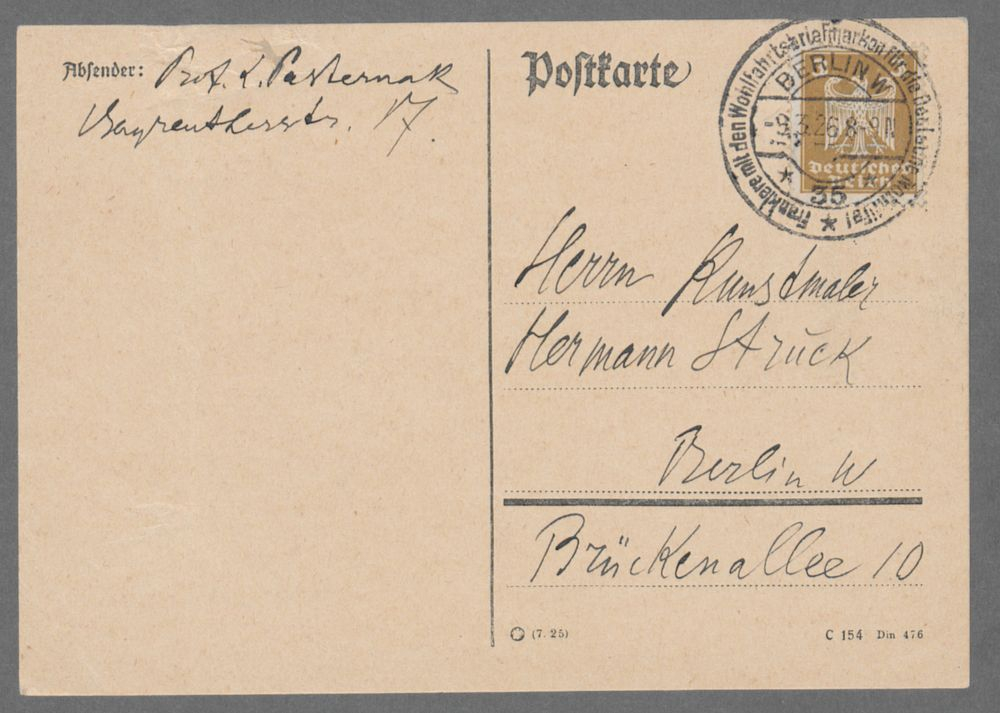 Absender: Prof. L. Pasternak
Bayreutherstr. 17.
Postkarte
Frankiere mit den Wohlfahrtsbriefmarken für die Deutsche Nothilfe!
BERLIN W
-9.3.26.8-9N
* 35 *
*
Deutsches
Reich
Herrn Kunstmaler
Hermann Struck
Berlin W
Brückenallee 10
(7. 25)
C 154 Din 476